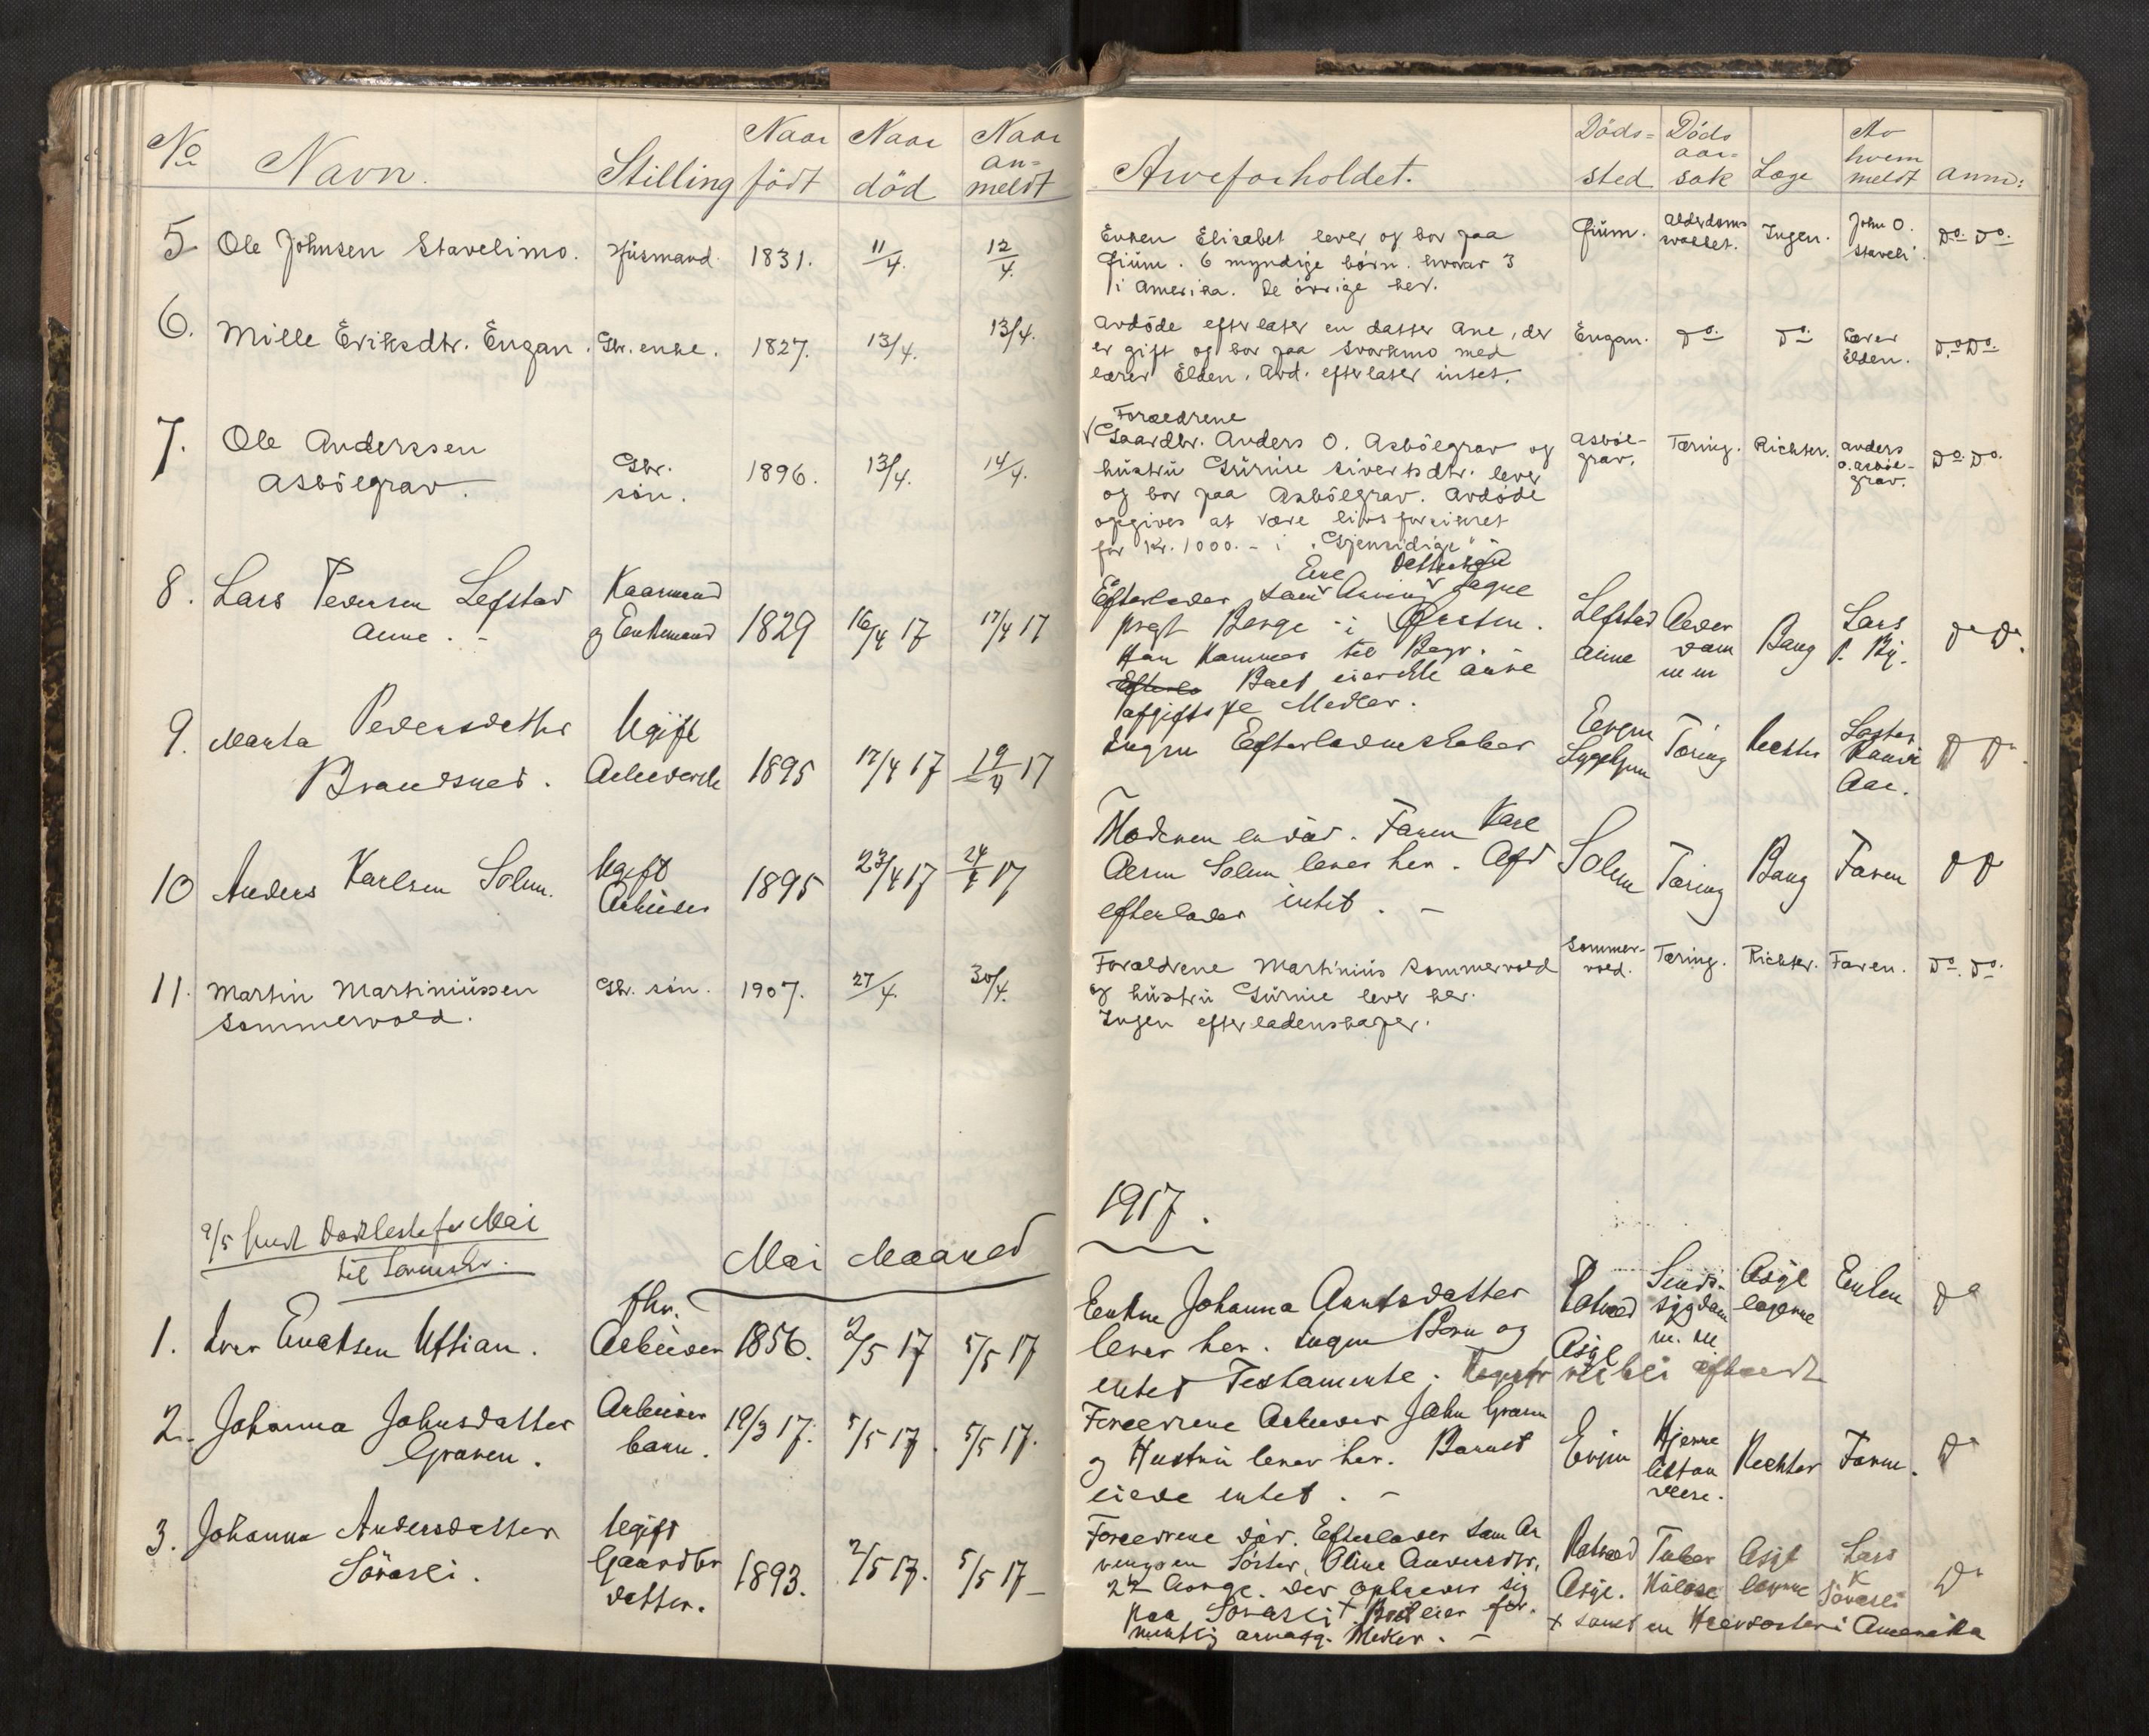 No Navn. Stilling Naar födt Naar död Naar an=meldt Arveforholdet. Döds=sted Döds aar=sak Læge Av hvem meldt anm:
5 Ole Johnsen Stavelimo. Husmand 1831. 11/4. 12/4.
Enken Elisabet lever og bor paa
Grüm. 6 myndige börn. hvorav 3
i Amerika. De övrige her.
Alderdoms
Ingen.
John O.
Staveli.
Do. Do.
6. Mille Eriksdtr. Engan. Gbr. enke. 1827. 13/4. 13/4.
Avdöde efterlater en datter Ane, der
er gift og bor paa Svorkmo med
lærer Elden. Avd. efterlater intet.
Engan.
Do.
Do.
Lærer
Elden.
Do. Do.
7. Ole Anderssen
Asbölgrav.
Gbr.
sön.
1896. 13/4. 14/4.
Forældrene
Gaardbr. Anders O. Asbölgrav og
hustru Gurine Sivertsdtr. lever
og bor paa Asbölgrav. Avdöde
opgives at være livsforsikret
for Kr. 1000.- i "Gjensidige"
Asböl-
grav.
Tæring. Richter.
Anders
O. Asböl-
grav.
Do. Do.
8. Lars Pedersen Lefstad
Aune. -
Kaarmand
og Enkemand
1829 16/4 17 17/4 17
Efterlader som Arving
Berge i
Han kommer til Begr.
Boet eier ikke
afgiftspl. Midler.
Lefstad
Aune
Alder
dom
m m
Bang
Lars
P. By.
Do Do.
9. Marta Pedersdatter
Brandsnes.
Ugift
Arbeiderske
1895 17/4 17 19/4 17
Ingen Efterladenskaber
Evjen
Sygehjem
Tæring Richter
Do Do.
10 Anders Karlsen Solem.
Ugift
Arbeider
1895 23/4 17 24/4 17
Moderen er död. Faren Karl
Olsen Solem lever her. Afd
efterlader intet. -
Solem Tæring Bang Faren Do Do
11. Martin Martiniussen
Sommervold.
Gbr. sön. 1907. 27/4. 30/4.
Forældrene Martinius Sommervold
og hustru Gurine lever her.
Ingen efterladenskaper.
Sommer-
vold.
Tæring. Richter. Faren. Do. Do.
9/5 sendt Dödsliste for Mai
til Sorenskr.
Mai Maaned
1917.
1. Iver Estensen Ustian.
fhv.
Arbeider
1856. 2/5 17 5/5 17
Enken Johanna Arntsdatter
lever her. Ingen Börn og
intet Testamente.
Rotvold
Asyl
Sinds-
sygdom
m. m.
Asyl
lægerne
Enken
Do
2. Johanna Johnsdatter
Graven.
Arbeider
barn.
19/3 17. 5/5 17. 5/5 17.
Forældrene Arbeider John Graven
og Hustru lever her. Barnet
eiede intet. -
Evjen
Hjerne
Richter Faren. Do
3. Johanna Andersdatter
Sörasli.
Ugift
Gaardbr
datter.
1893. 2/5 17. 5/5 17 -
Forældrene död. Efterlader som Ar
vingen Söster, Oline Andersdtr,
22 Aar. der opholder sig
paa Sorasli + Boet eier for-
Midler. -
Rotvold
Asyl.
Tuber
kulose
Asyl
lægerne
Lars
K
Sörasli
Do
+ samt en Halvsöster i Amerika